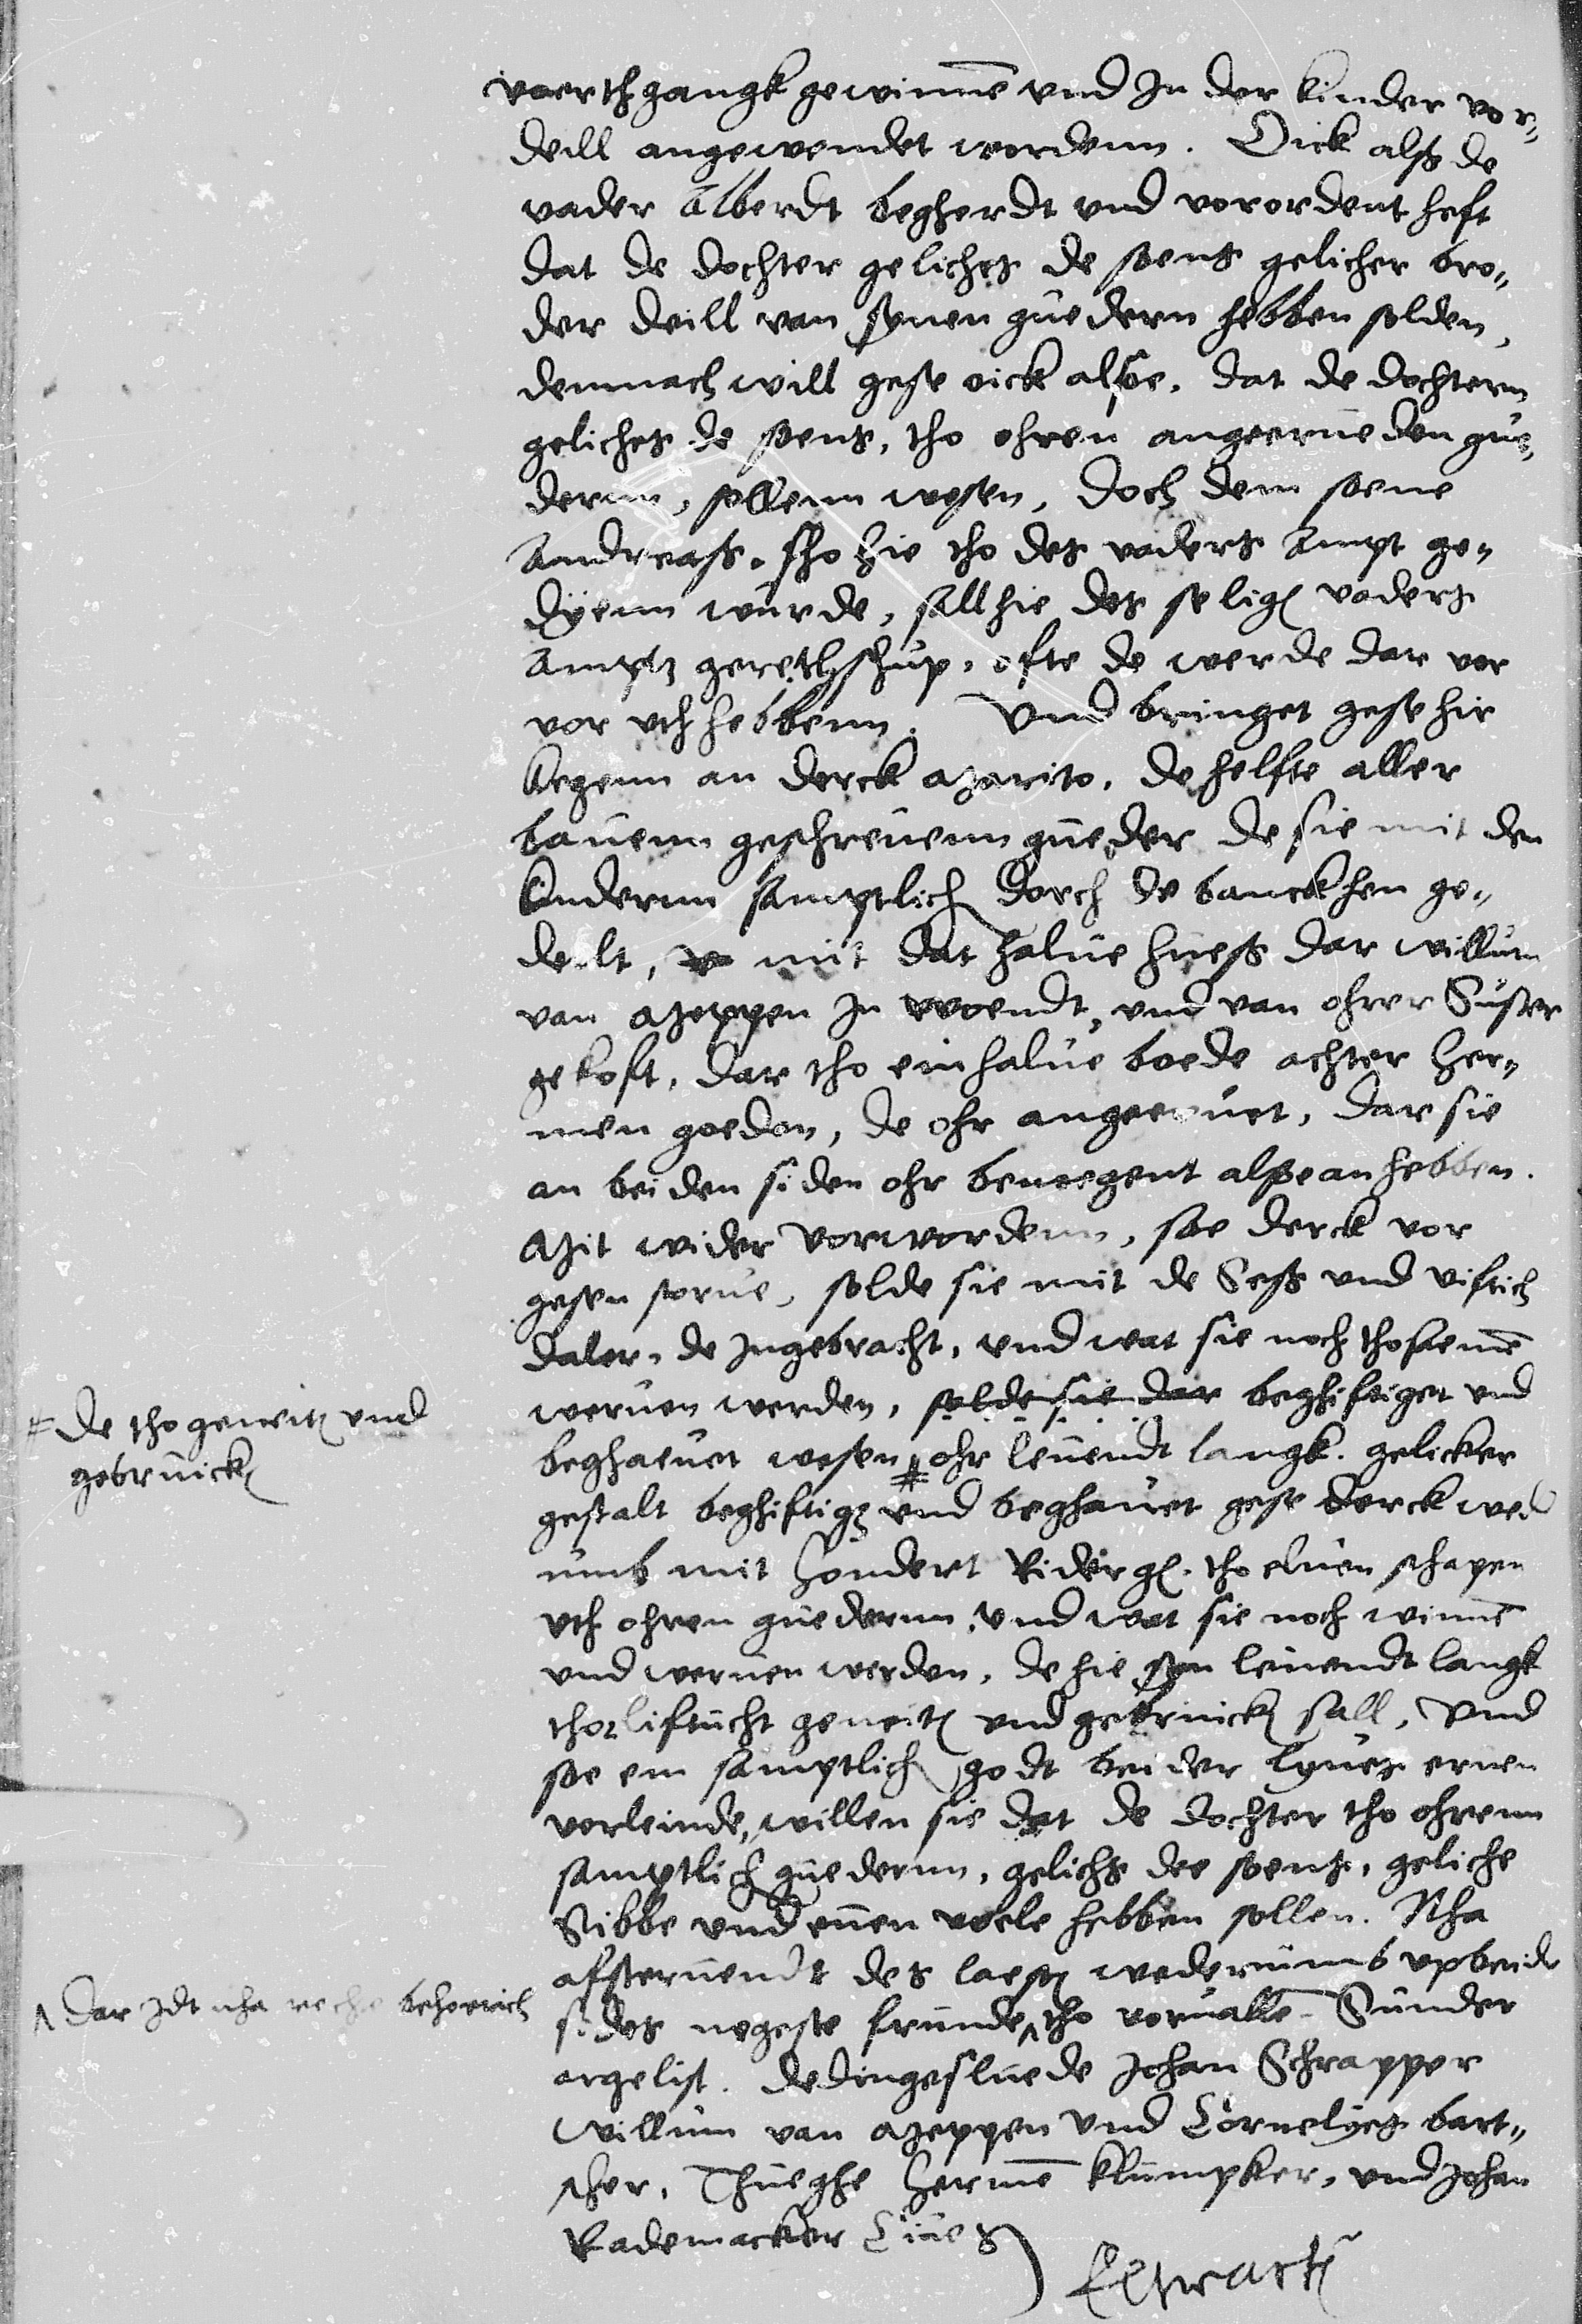 voerthgangk gewinnē vnd in der kinder vor„
deill angewendet werdenn. Oick alß de
vader Alberdt begherdt vnd verordent heft
dat de dochter gelichs de soens gelicher bro„
der deill van synen guedern hebben solden,
demnach will gese oick alsoe, dat de dochtern
gelichs de soens, tho ohren angeerueden gue„
dernn, sollenn wesen, doch dem soene
Andreaß. sho hie tho des vaders Ampt ge„
dyenn wurde, sall hie des selig vaders
Ampts gerethschup, ofte de werde dar vor
vor vth hebbenn. Vnd bringet gese hir
kegenn an derck Marito, de helfte aller
bauenn geschreuenn gueder de sie mit den
kindernn samptlich dorch de banck hen ge„
deilt, mit dat halue hueß dar willum
van Meppen in woendt, vnd van ohrer Suster
gekoft, dar tho ein halue boede achter Her„
men goeden, de ohr angeeruet, dar sie
an beiden siden ohr benoegent alsoe an hebben.
Mit wider vorwordenn, soe derck vor
gesen storue, solde sie mit de Seß vnd viftich
daler, de ingebracht, vnd wat sie noch thosamē
weruen werden, solde sie dar beghiftiget vnd
beghauet wesen # ohr leuendt langk. gelicker
gestalt beghiftig vnd beghauet gese derck wed
umb mit hondert Rider gl. tho eluen schapen
vth ohren guedernn, vnd wat sie noch winnē
vnd weruen werden, de hie syn leuendt langk
thor liftucht geneit vnd gebruick sall, Vnd
soe em samptlich godt beider lyues eruen
vorleinde, willen sie dat de dochter tho ohrenn
samptlich guedernn, gelichs dee soens, geliche
Sibbe vnd euen veele hebben sollen. Nha
afsteruendt des laest wederumb vp beide
sides negeste frunde ^ tho voruallē. Sunder
argelist. dedingesluede Johan Schrapper
Willum van Meppen vnd Cornelyes bart„
scher, Thueghe Hermē klumpker, vnd Johan
Rademacker Ciues
# de tho geneit vnd
gebruick
^ dar idt nha rechte behoerich